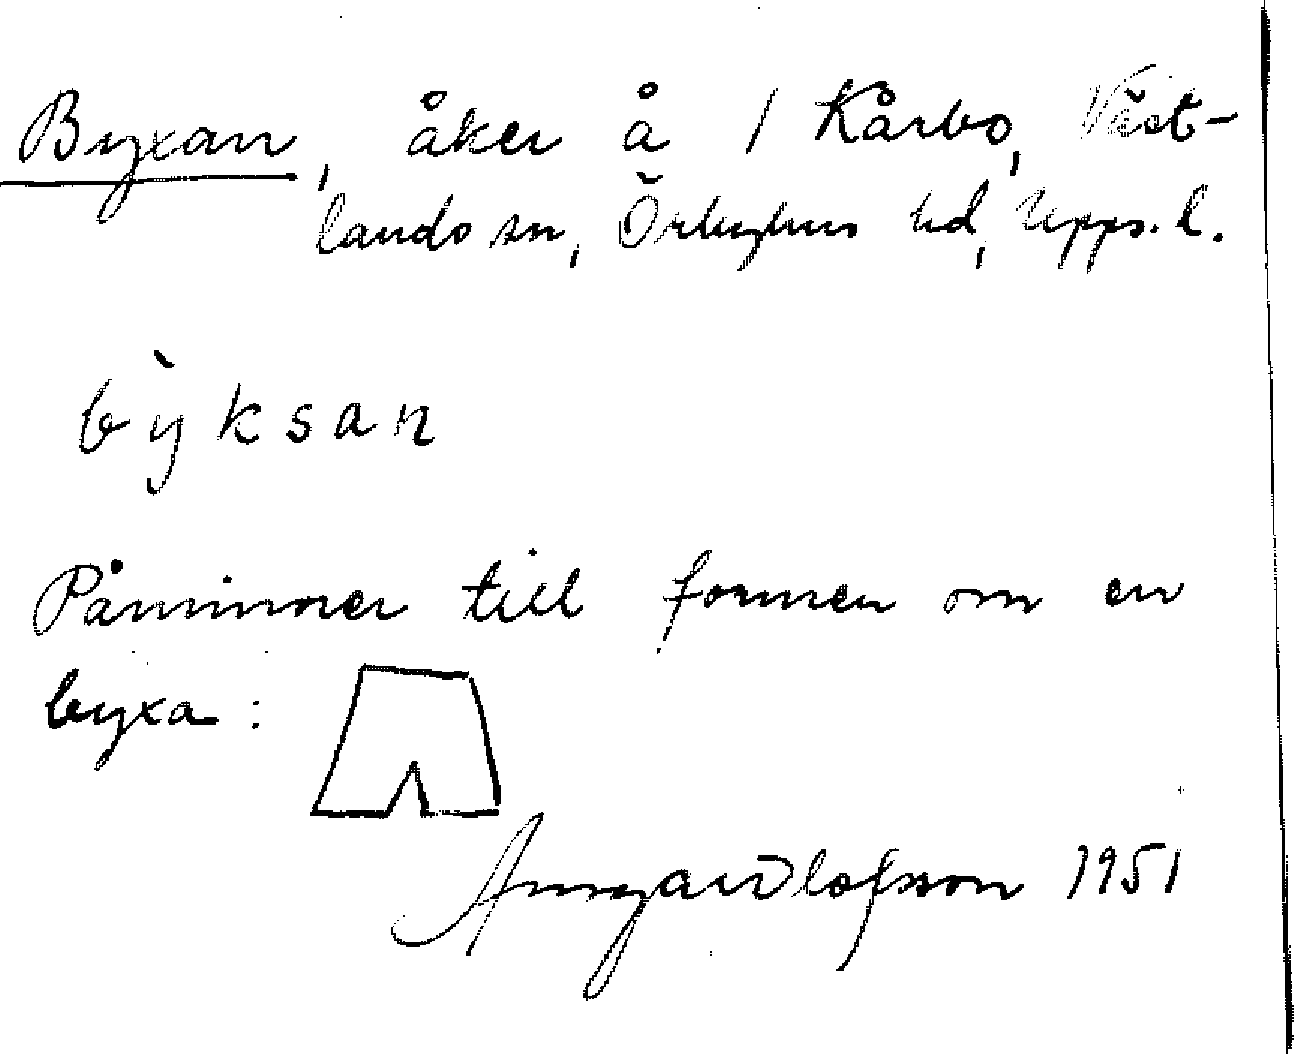 Byxan, åker å 1 Kårbo, Väst-
lands sn, Örbyhus hd, Upps. l.
bỳksan
Påminner till formen om en
byxa:
Ansgar Olofsson 1951